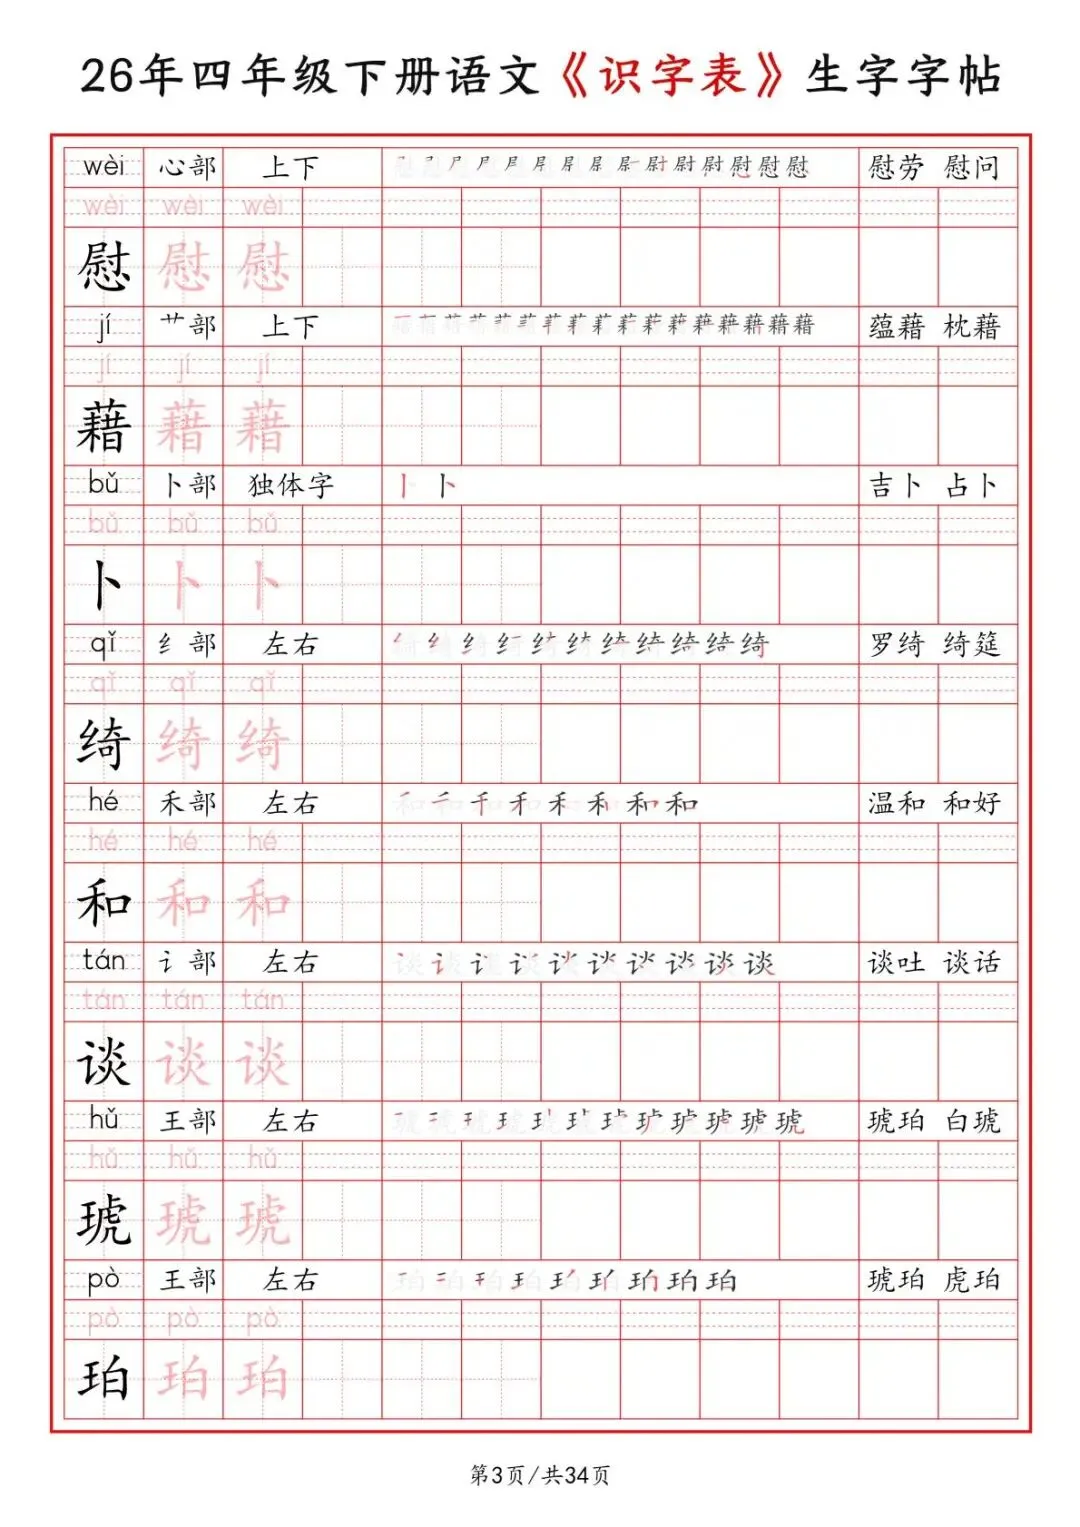 26年四年级下册语文《识字表》生字字帖
wèi 心部 上下 慰劳 慰问
wèi wèi wèi
慰 慰 慰
jí 艹部 上下 蕴藉 枕藉
jí jí jí
藉 藉 藉
bǔ 卜部 独体字 丨 卜 吉卜 占卜
bǔ bǔ bǔ
卜 卜 卜
qǐ 纟部 左右 罗绮 绮筵
qǐ qǐ qǐ
绮 绮 绮
hé 禾部 左右 温和 和好
hé hé hé
和 和 和
tán 讠部 左右 谈吐 谈话
tán tán tán
谈 谈 谈
hǔ 王部 左右 琥珀 白琥
hǔ hǔ hǔ
琥 琥 琥
pò 王部 左右 琥珀 虎珀
pò pò pò
珀 珀 珀
第3页/共34页